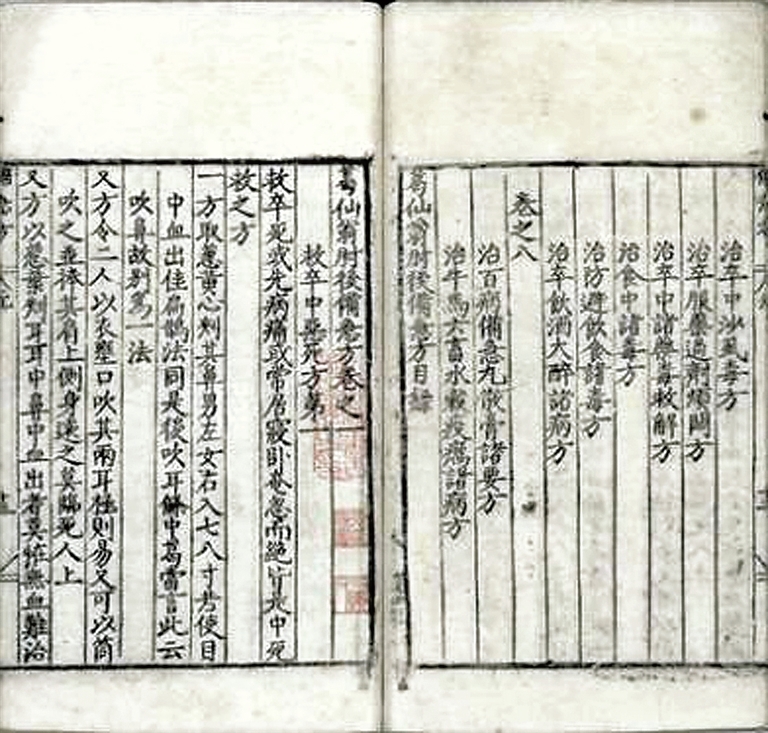 治卒中沙虱毒方
治卒服藥過劑煩悶方
治卒中諸藥毒救解方
治食中諸毒方
治防避飲食諸毒方
治卒飲酒大醉諸病方
卷之八
治百病備急丸散膏諸要方
治牛馬六畜水穀疫癘諸病方
葛仙翁肘後備急方目錄
葛仙翁肘後備急方卷之一
救卒中惡死方第一
救卒死或先病痛或常居寢卧奄忽而絕皆是中死
救之方
一方取葱黃心刺其鼻男左女右入七八寸若使目
中血出佳扁鵲法同是後吹耳條中葛當言此云
吹鼻故別爲一法
又方令二人以衣壅口吹其兩耳極則易又可以筒
吹之並捧其肩上側身遠之莫臨死人上
又方以葱葉刺耳耳中鼻中血出者莫怪無血難治